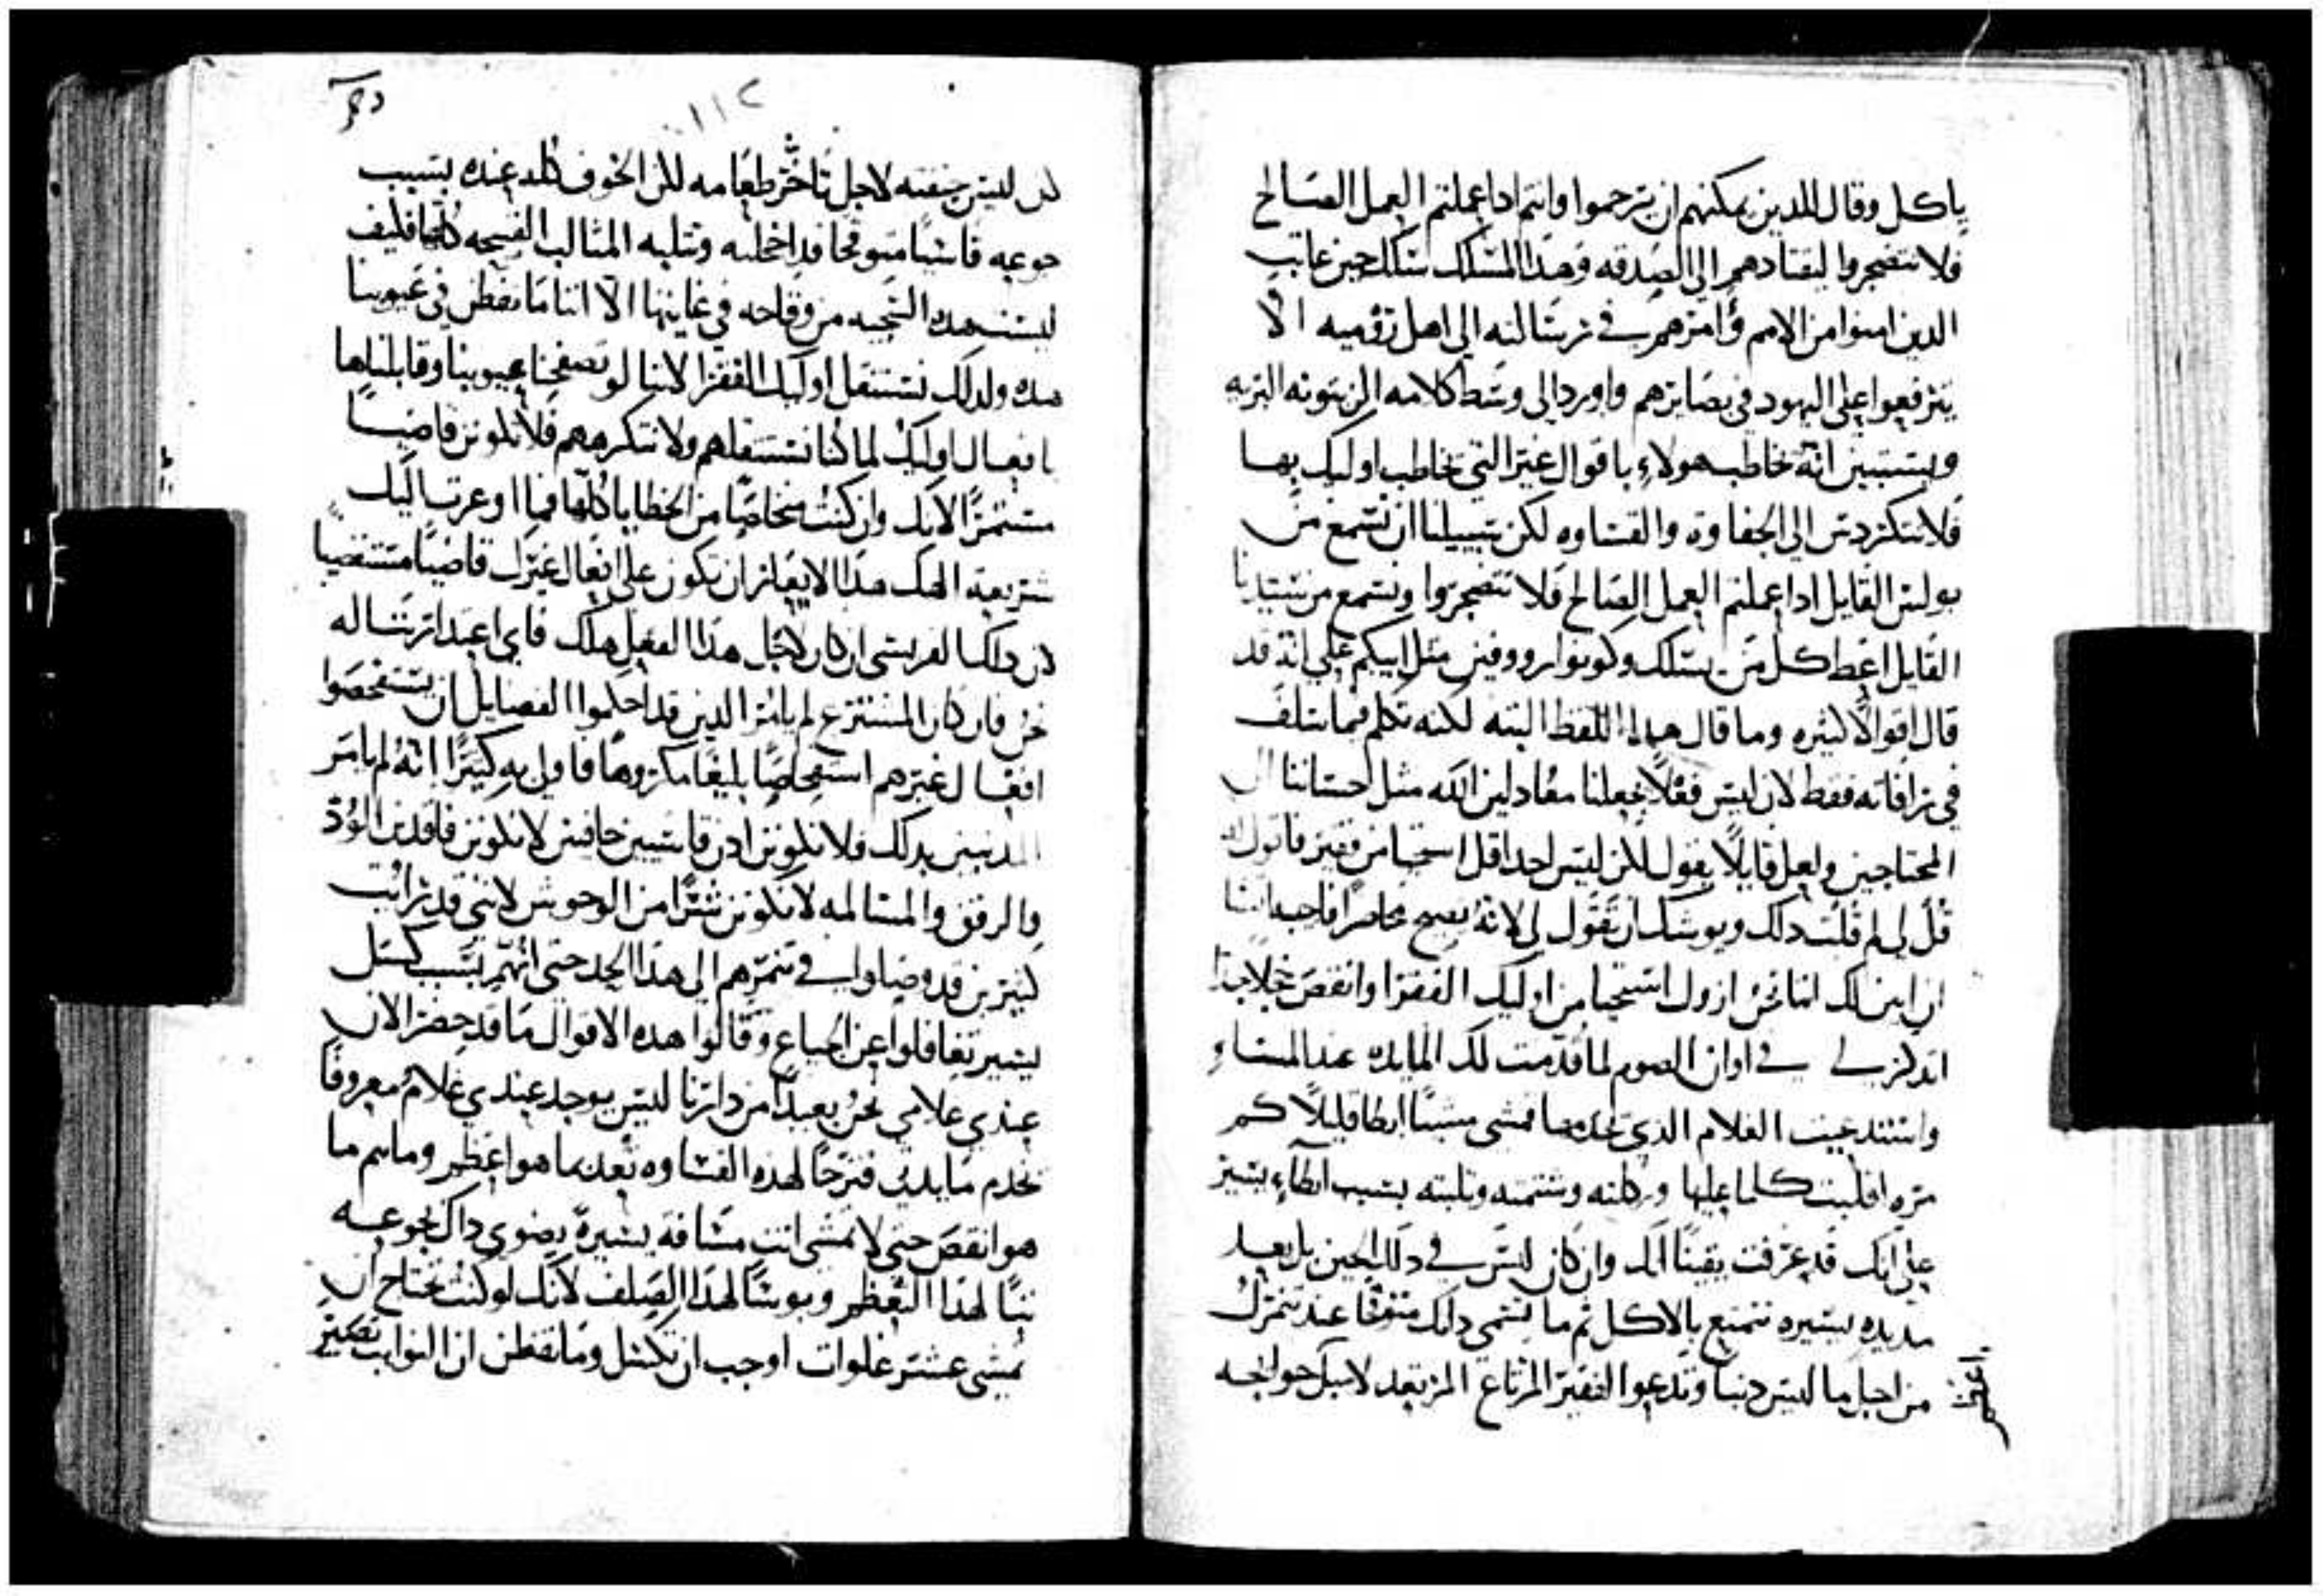 ياكل وقال للدين يمكنهم ان يرحموا وانتم ادا عملتم العمل الصالح
فلا تتضجروا ليقتادهم الي الصدقه وهدا المسلك سلك حين عاتب
الدين امنوا من الامم وامرهم في رسالته الي اهل روميه الا
يترفعوا علي اليهود في مصايرهم واورد الي وسط كلامه الزيتونه البريه
ويستبين انه خاطب هولاء باقوال غير التي خاطب اوليك بها
فلا تتكردس الي الجفاوه والقساوه لكن سبيلنا ان نسمع من
بولس القايل ادا عملتم العمل الصالح فلا تتضجروا ونسمع من سيدنا
القايل اعط كل من يسلك وكونوا رووفين مثل ابيكم علي انه قد
قال اقوالا كثيره وما قال هدا اللفظ البته لكنه تكلم فيما سلف
في رافاته فقط لان ليس فعلا يجعلنا معادلين الله مثل احساننا الي
المحتاجين ولعل قايلا يقول لكن ليس احد اقل استحيا من فقير فاقول له
قل لي لم قلت دلك ويوشك ان تقول لي لانه يصيح محاصرا
ان ابين لك اننا نحن ازول استحيا من اوليك الفقرا وانقص خجلا جدا
ادكر لي في اوان الصوم لما قدمت لك المايده عند المساء
واستدعيت الغلام الدي يخدمها فمشي مشيا ابطا قليلا كم
مره اقلبت كلما عليها وركلته وشتمته وثلبته بسبب ابطاء يسير
علي انك قد عرفت يقينا انك وان كان ليس في دلك الحين بل بعد
مديده يسيره تتمتع بالاكل ثم ما تسمي داتك متوقحا عند تنمرك
من اجل ما ليس دنيا وتدعوا الفقير المرتاع المرتعد لا سبل حوايجه
١١٢
لان ليس حنقته لاجل تاخر طعامه لكن الخوف كله عنده بسبب
جوعه قاسيا متوقحا قد اخجلته وتثلبه المثالب القبيحه كلها فكيف
ليست هده السجيه من وقاحه في غايتها الا اننا ما نفطن في عيوبنا
هده ولدلك نستثقل اوليك الفقرا لاننا لو تصفحنا عيوبنا وقابلناها
بافعال اوليك لما كنا نستثقلهم ولا نتكرههم فلا تكونن قاضيا
متنمرا لانك وان كنت متخلصا من الخطايا كلها فما اوعزت اليك
شريعة الهك هدا الايعاز ان تكون علي افعال غيرك قاضيا مستقصيا
لان دلك الفريسي ان كان لاجل هدا الفعل هلك فاي اعتدار نناله
نحن فان كان المشترع لم يامر الدين قد احكموا الفضايل ان يستفحصوا
افعال غيرهم استفحاصا بليغا مكروها فاولي به كثيرا انه لم يامر
المدنبين بدلك فلا نكونن ادن قاسيين جافيين لا نكونن فاقدين الود
والرفق والمسالمه لا نكونن شرا من الوحوش لانني قد رايت
كثيرين قد وصلوا في تنمرهم الي هدا الحد حتي انهم بسبب كسل
يسير تغافلوا عن الجياع وقالوا هده الاقوال ما قد حضر الان
عندي غلامي نحن بعيد من دارنا ليس يوجد عندي غلام معروفا
يخدم مايدتي فترحا لهده القساوه تعد بما هو اعظم وما تم ما
هو انقص حتي لا تمشي انت مسافه يسيره يضوي داك بجوعه
تبا لهدا التعظم وبوسا لهدا الصلف لانك لو كنت تحتاج ان
تمشي عشر غلوات اوجب ان تكسل وما تفطن ان الثواب يصير